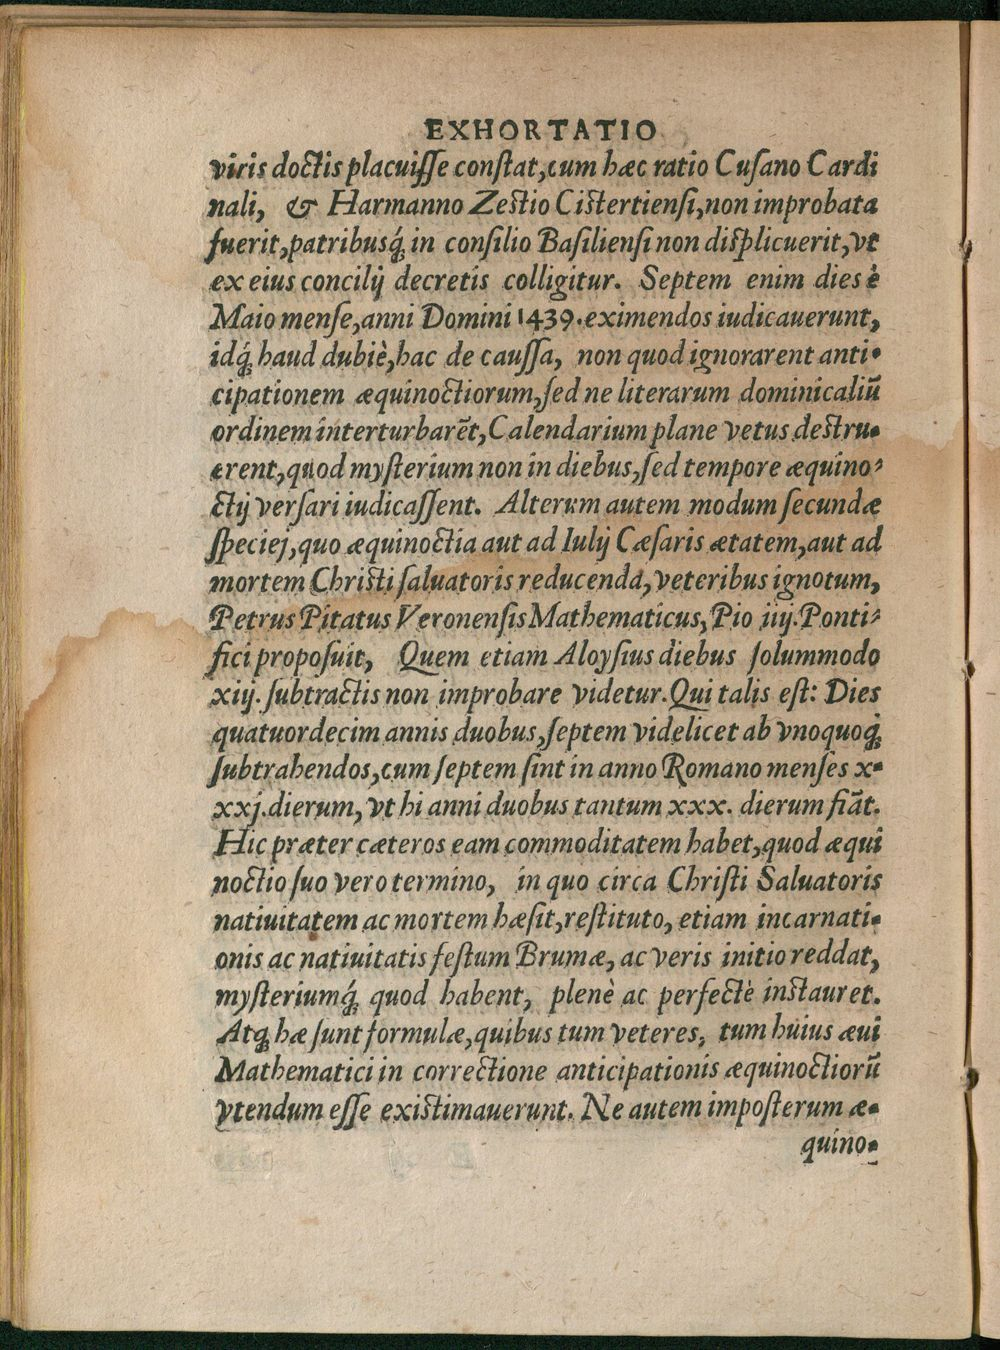 EXHORTATIO
viris doctis placuisse constat, cum hæc ratio Cusano Cardi
nali, & Harmanno Zestio Cistertiensi, non improbata
fuerit, patribusq́; in consilio Basiliensi non displicuerit, vt
ex eius concilij decretis colligitur. Septem enim dies è
Maio mense, anni Domini 1439. eximendos iudicauerunt,
idq́; haud dubiè, hac de caussa, non quod ignorarent anti-
cipationem æquinoctiorum, sed ne literarum dominicaliū
ordinem interturbarēt, Calendarium plane vetus destru-
erent, quod mysterium non in diebus, sed tempore æquino-
ctij versari iudicassent. Alterum autem modum secundæ
speciei, quo æquinoctia aut ad Iulij Cæsaris ætatem, aut ad
mortem Christi saluatoris reducenda, veteribus ignotum,
Petrus Pitatus Veronensis Mathematicus, Pio iiij. Ponti-
fici proposuit, Quem etiam Aloysius diebus solummodo
xiij. subtractis non improbare videtur. Qui talis est: Dies
quatuordecim annis duobus, septem videlicet ab vnoquoq́;
subtrahendos, cum septem sint in anno Romano menses x-
xxj. dierum, vt hi anni duobus tantum xxx. dierum fiāt.
Hic præter cæteros eam commoditatem habet, quod æqui
noctio suo vero termino, in quo circa Christi Saluatoris
natiuitatem ac mortem hæsit, restituto, etiam incarnati-
onis ac natiuitatis festum Brumæ, ac veris initio reddat,
mysteriumq́; quod habent, plenè ac perfectè instauret.
Atq; hæ sunt formulæ, quibus tum veteres, tum huius æui
Mathematici in correctione anticipationis æquinoctiorū
vtendum esse existimauerunt. Ne autem imposterum æ-
quino-